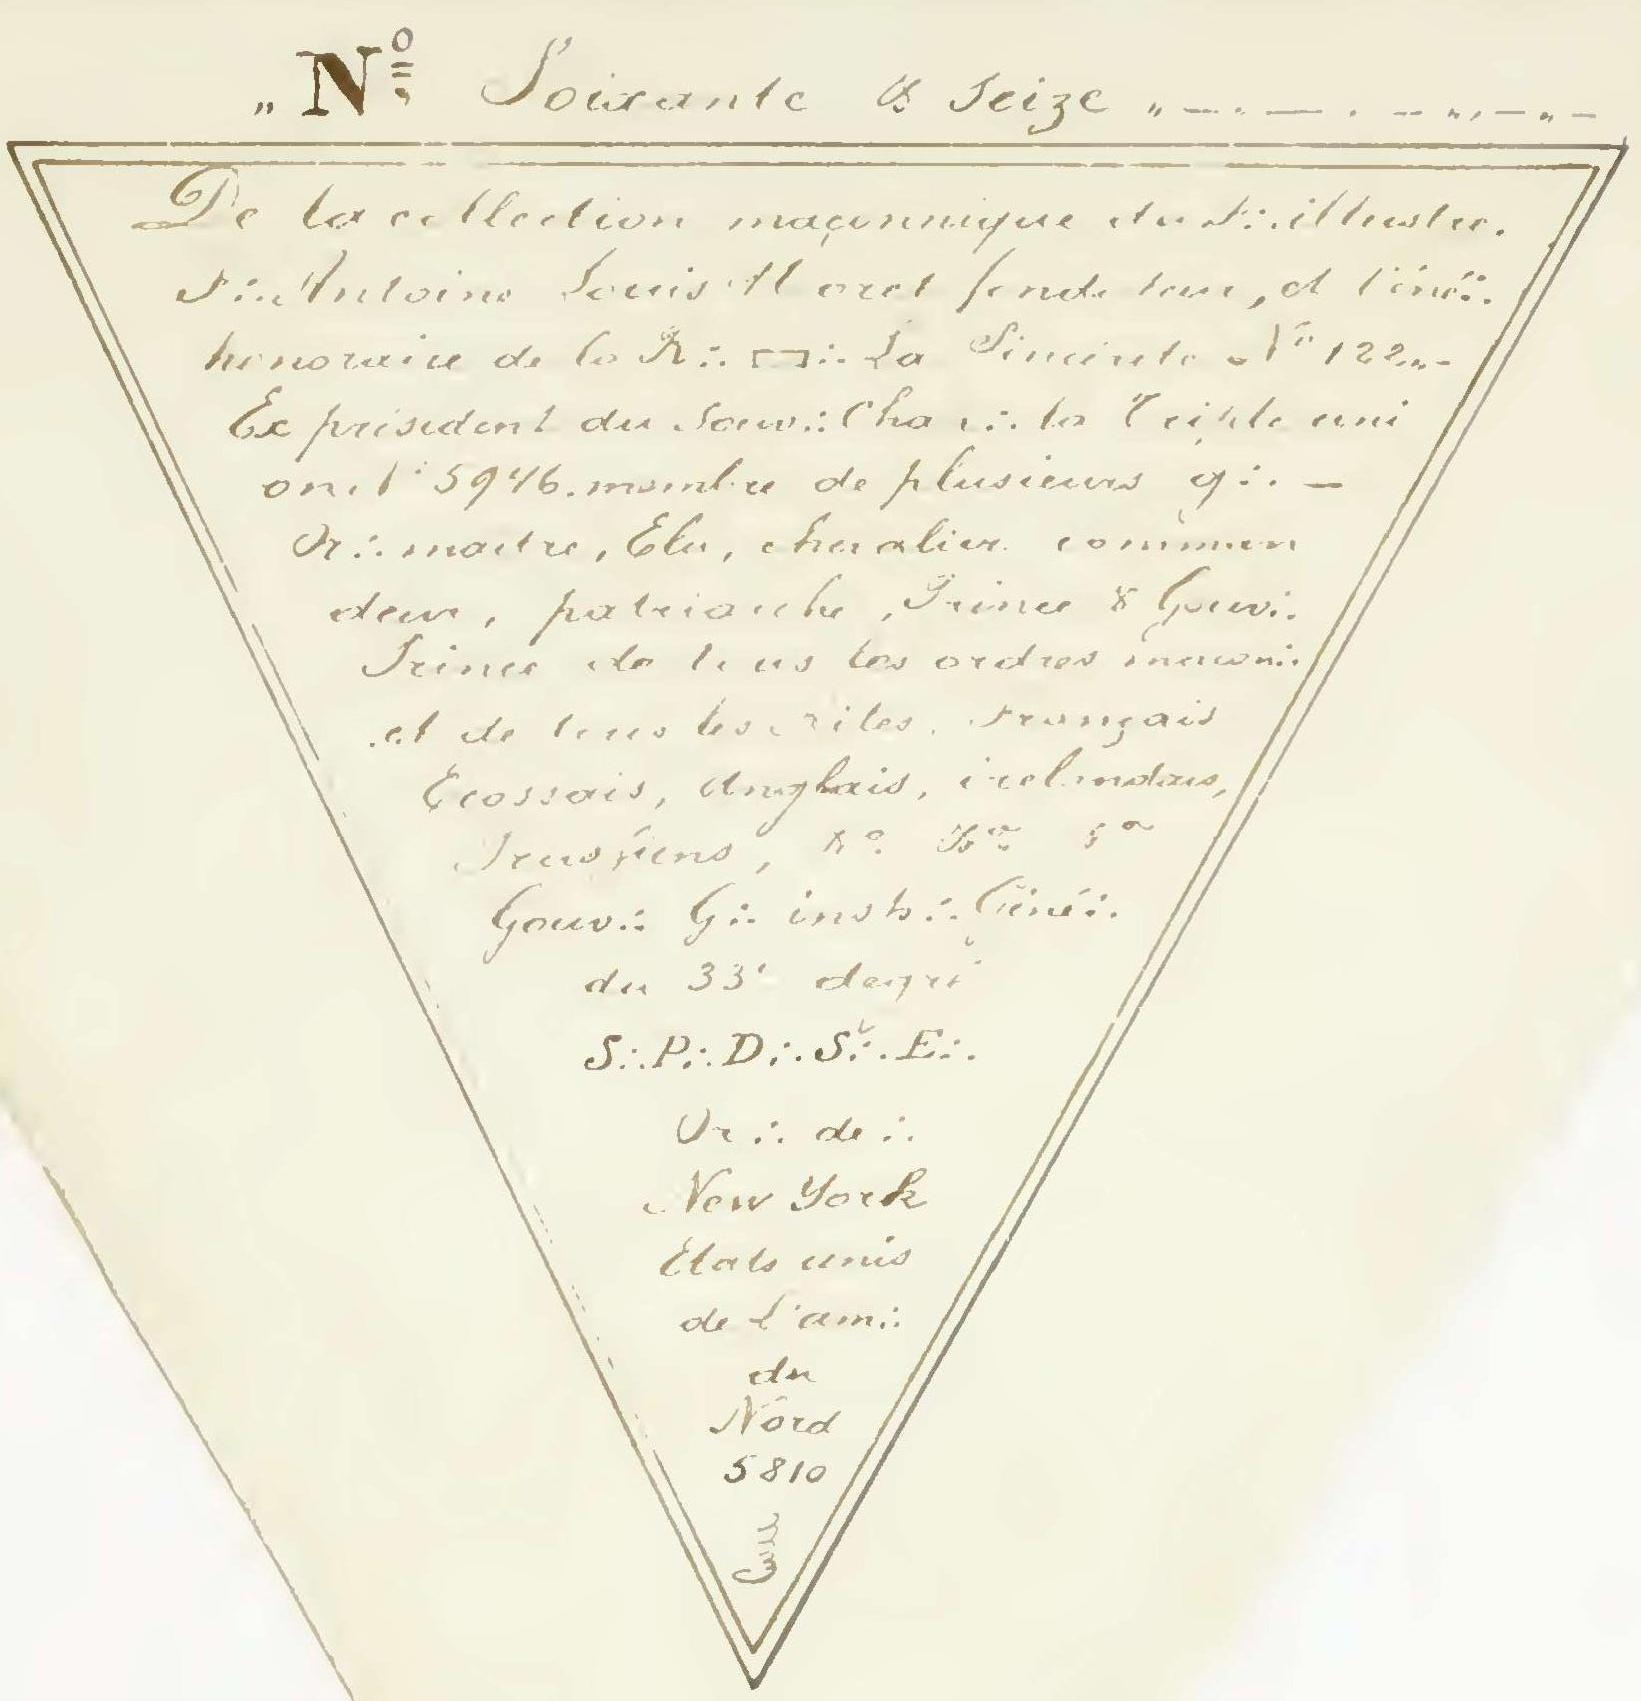 „ Nº Soixante & Seize „
De la collection maçonnique du F∴ illustre.
F∴ Antoine Louis Moret fondateur, et Véné∴
honoraire de la R∴ ▭∴ La Sincérité Nº 122
Ex président du Souv∴ Cha∴ la Triple uni
on 5946. membre de plusieurs g∴ —
Or∴ maitre, Elu, chevalier comman
deur, patriarche, Prince &
Prince de tous les ordres maçon∴
et de tous les rites. Français
Ecossais, Anglais, irelandais,
Prussiens,
G∴ ins∴ Géné∴
du 33e degré
S∴P∴D∴S∴E∴
Or∴ de∴
New York
Etats unis
de l'am∴
du
Nord
5810